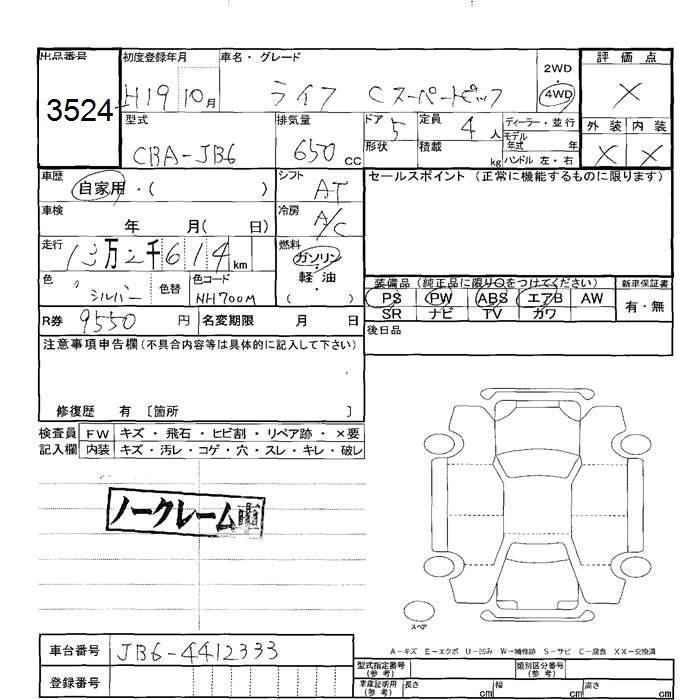 出品番号 初度登録年月 車名・グレード 2WD 評価点
3524 H19 10月 ライフ Cスーペートピック 4WD ×
型式 排気量 ドア 5 定員 4人 ディーラー・並行 外装 内装
CBA-JB6 650cc 形状 積載 kg モデル年式 年 × ×
ハンドル 左・右
車歴 自家用・( ) シフト AT セールスポイント (正常に機能するものに限ります)
車検 年 月( 日) 冷房 A/C
走行 13万2千614km 燃料 ガソリン・軽油・( )
色 シルバー 色替 色コード NH700M
装備品 (純正品に限り○をつけてください) 新車保証書
PS PW ABS エアB AW 有・無
SR ナビ TV カワ
R券 9550円 名変期限 月 日 後日品
注意事項申告欄 (不具合内容等は具体的に記入して下さい)
修復歴 有 [箇所 ]
検査員 FW キズ・飛石・ヒビ割・リペア跡・×要
記入欄 内装 キズ・汚レ・コゲ・穴・スレ・キレ・破レ
ノークレーム車
スペア
A-キズ E-エクボ U-凹み W-補修跡 S-サビ C-腐食 XX-交換済
車台番号 JB6-4412333 型式指定番号(参考) 類別区分番号(参考)
登録番号 車庫証明用(参考) 長さ cm 幅 cm 高さ cm